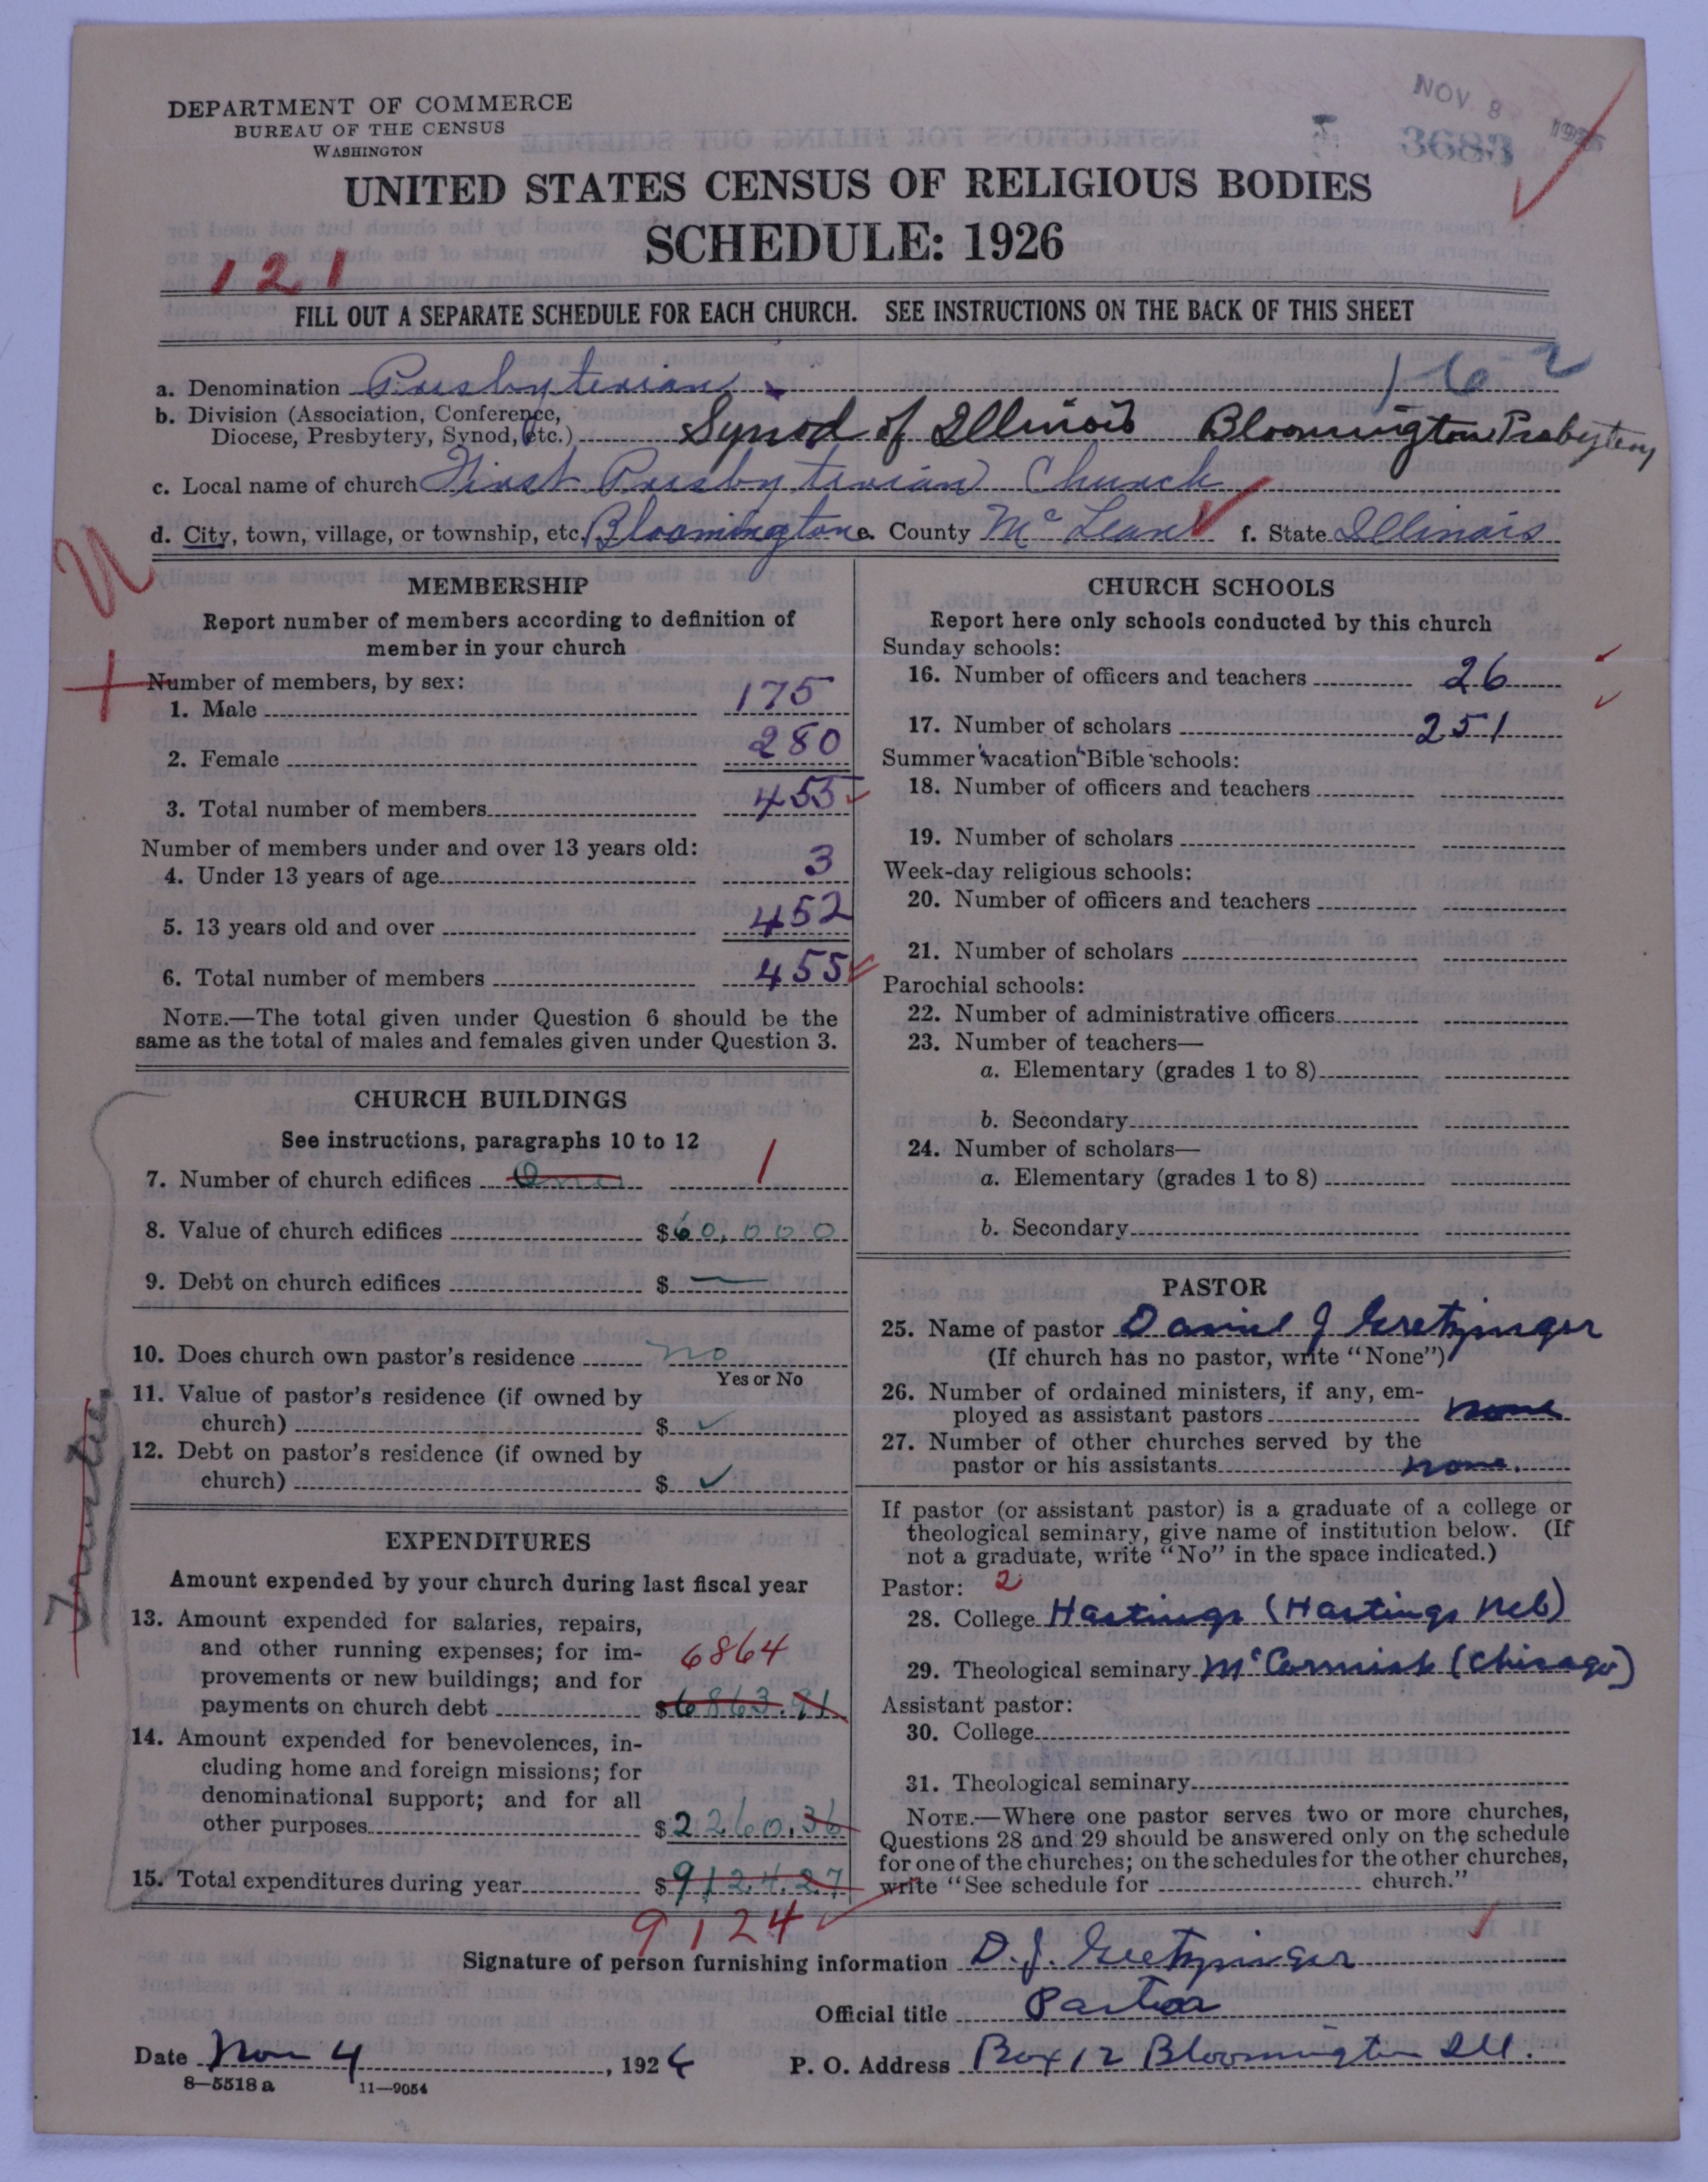 NOV 8 1926
3683
DEPARTMENT OF COMMERCE
BUREAU OF THE CENSUS
WASHINGTON
UNITED STATES CENSUS OF RELIGIOUS BODIES
SCHEDULE: 1926
121
FILL OUT A SEPARATE SCHEDULE FOR EACH CHURCH. SEE INSTRUCTIONS ON THE BACK OF THIS SHEET
a. Denomination Presbyterian 162
b. Division (Association, Conference,
Diocese, Presbytery, Synod, etc.) Synod of Illinois Bloomington Presbytery
c. Local name of church First Presbyterian Church
d. City, town, village, or township, etc. Bloomington e. County McLean f. State Illinois
MEMBERSHIP
Report number of members according to definition of
member in your church
Number of members, by sex:
1. Male 175
2. Female 280
3. Total number of members 455
Number of members under and over 13 years old:
4. Under 13 years of age 3
5. 13 years old and over 452
6. Total number of members 455
NOTE.—The total given under Question 6 should be the
same as the total of males and females given under Question 3.
CHURCH BUILDINGS
See instructions, paragraphs 10 to 12
7. Number of church edifices One 1
8. Value of church edifices $60,000
9. Debt on church edifices $ —
10. Does church own pastor's residence no
Yes or No
11. Value of pastor's residence (if owned by
church) $ ✓
12. Debt on pastor's residence (if owned by
church) $ ✓
EXPENDITURES
Amount expended by your church during last fiscal year
13. Amount expended for salaries, repairs,
and other running expenses; for im-
provements or new buildings; and for 6864
payments on church debt $6863.91
14. Amount expended for benevolences, in-
cluding home and foreign missions; for
denominational support; and for all
other purposes $2260.36
15. Total expenditures during year $9124.27
9124
CHURCH SCHOOLS
Report here only schools conducted by this church
Sunday schools:
16. Number of officers and teachers 26
17. Number of scholars 251
Summer vacation Bible schools:
18. Number of officers and teachers
19. Number of scholars
Week-day religious schools:
20. Number of officers and teachers
21. Number of scholars
Parochial schools:
22. Number of administrative officers
23. Number of teachers—
a. Elementary (grades 1 to 8)
b. Secondary
24. Number of scholars—
a. Elementary (grades 1 to 8)
b. Secondary
PASTOR
25. Name of pastor Daniel J Gretzinger
(If church has no pastor, write "None")
26. Number of ordained ministers, if any, em-
ployed as assistant pastors none
27. Number of other churches served by the
pastor or his assistants none.
If pastor (or assistant pastor) is a graduate of a college or
theological seminary, give name of institution below. (If
not a graduate, write "No" in the space indicated.)
Pastor: 2
28. College Hastings (Hastings Neb)
29. Theological seminary McCormick (Chicago)
Assistant pastor:
30. College
31. Theological seminary
NOTE.—Where one pastor serves two or more churches,
Questions 28 and 29 should be answered only on the schedule
for one of the churches; on the schedules for the other churches,
write "See schedule for church."
Signature of person furnishing information D. J. Gretzinger
Official title Pastor
Date Nov 4, 1926 P. O. Address Box 12 Bloomington Ill.
8—5518 a 11—9054